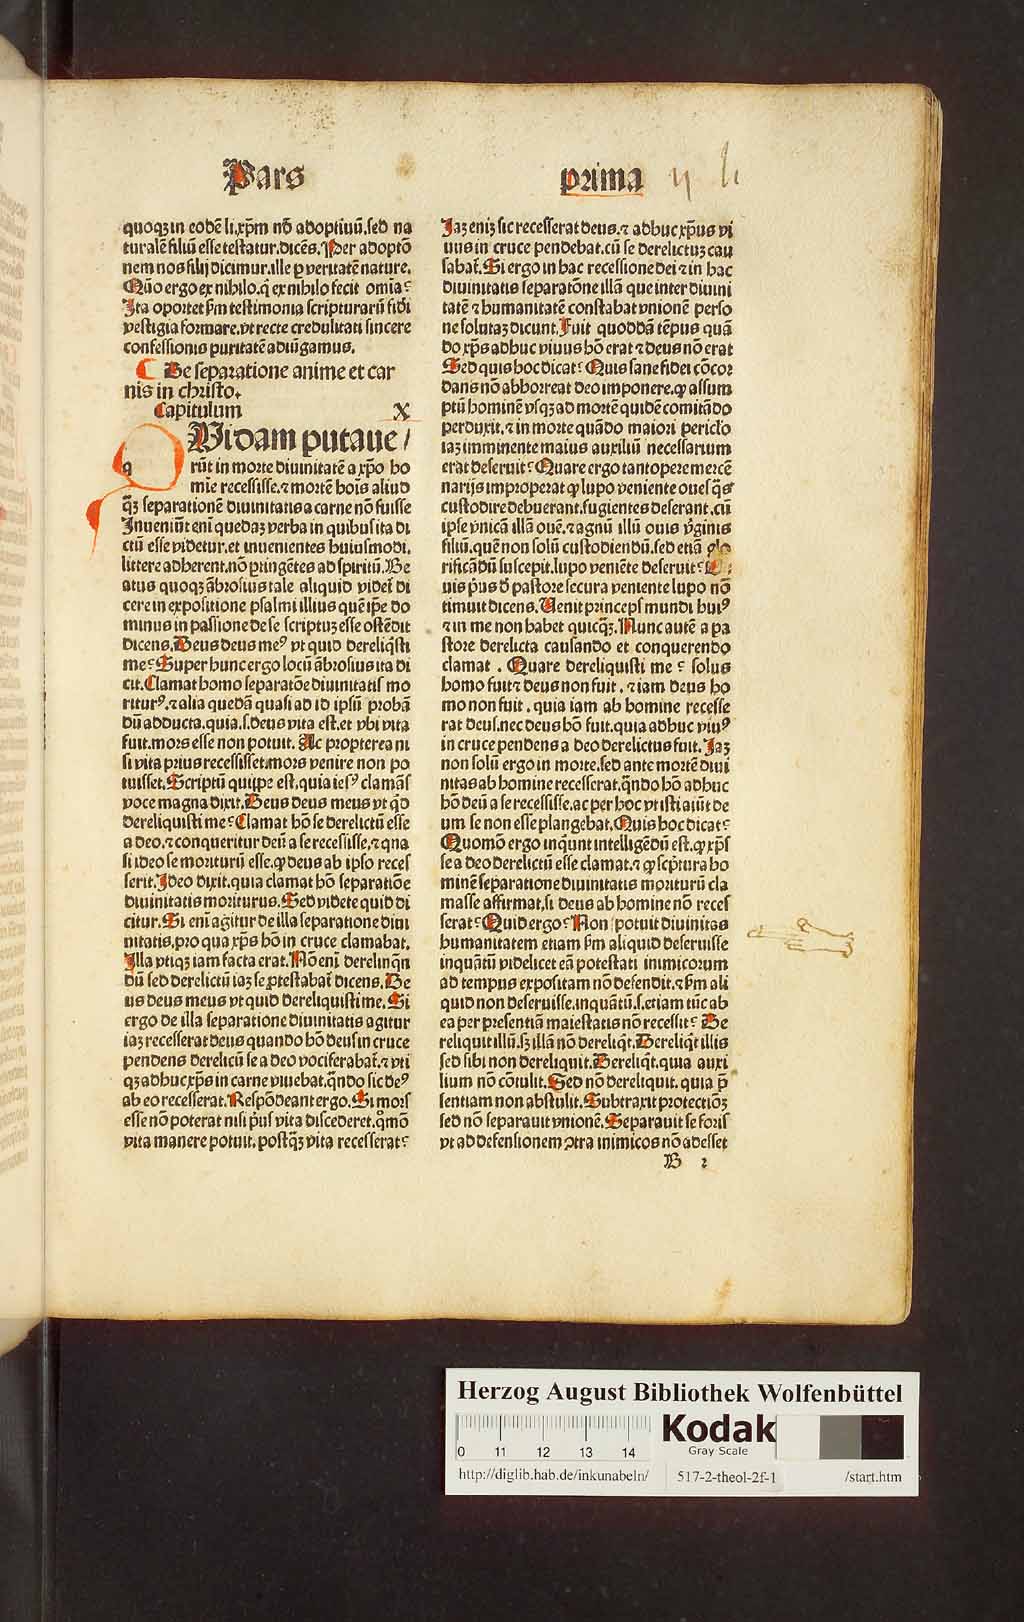 Pars prima
quoqꝫ in eodē li. xp̄m nō adoptiuū. sed na
turalē filiū esse testatur. dicēs. Per adoptō
nem nos filij dicimur. ille ꝑ veritatē nature.
Qūo ergo ex nihilo. q̇ ex nihilo fecit omīa?
Ita oportet ẜm testimonia scripturarū fidei
vestigia formare. vt recte credulitati sincere
confessionis puritatē adiūgamus.
De separatione anime et car
nis in christo.
Capitulum X
QUidam putaue/
rūt in morte diuinitatē a xp̄o ho
mīe recessisse. ⁊ mortē hoīs aliud
q̄ꝫ separationē diuinitatis a carne nō fuisse
Inueniūt eni quedaꝫ verba in quibus ita di
ctū esse videtur. et inuenientes huiusmodi.
littere adherent. nō pringētes ad spiritū. Be
atus quoqꝫ ābrosius tale aliquid videt̄ di
cere in expositione psalmi illius quē ip̄e do
minus in passione de se scriptuꝫ esse ostēdit
dicens. Deus deus meꝰ vt quid dereliq̇sti
me? Super hunc ergo locū ābrosius ita di
cit. Clamat homo separatōe diuinitatis mo
riturꝰ. ⁊ alia quedā quasi ad id ipsū probā
dū adducta. quia. s. deus vita est. et vbi vita
fuit. mors esse non potuit. Ac propterea ni
si vita prius recessisset. mors venire non po
tuisset. Scriptū quippe est. quia iesꝰ clamās
voce magna dixit. Deus deus meus vt q̇d
dereliquisti me? Clamat hō se derelictū esse
a deo. ⁊ conqueritur deū a se recessisse. ⁊ qua
si ideo se moriturū esse. ꝙ deus ab ipso reces
serit. Ideo dixit. quia clamat hō separatiōe
diuinitatis moriturus. Sed videte quid di
citur. Si enī agitur de illa separatione diui
nitatis. pro qua xp̄s hō in cruce clamabat.
Illa vtiqꝫ iam facta erat. Nō enī derelinq̄n
dū sed derelictū iaꝫ se ꝓtestabat̄ dicens. De
us deus meus vt quid dereliquisti me. Si
ergo de illa separatione diuinitatis agitur
iaꝫ recesserat deus quando hō deus in cruce
pendens derelictū se a deo vociferabat̄. ⁊ vti
qꝫ adhuc xp̄s in carne viuebat. q̄ndo sic deꝰ
ab eo recesserat. Respōdeant ergo. Si mors
esse nō poterat nisi p̄us vita discederet. q̊mō
vita manere potuit. postq̄ꝫ vita recesserat?
Iaꝫ enīꝫ sic recesserat deus. ⁊ adhuc xp̄us vi
uus in cruce pendebat. cū se derelictuꝫ cau
sabat̄. Si ergo in hac recessione dei ⁊ in hac
diuinitatis separatōne illā que inter diuini
tatē ⁊ humanitatē constabat vnionē perso
ne solutaꝫ dicunt. Fuit quoddā tēpus quā
do xp̄s adhuc viuus hō erat ⁊ deus nō erat
Sed quis hoc dicat? Quis sane fidei cōcor
dans nō abhorreat deo imponere. ꝙ assum
ptū hominē vsqꝫ ad mortē quidē comitādo
perduxit. ⁊ in morte quādo maiori periclo
iaꝫ imminente maius auxiliū necessarium
erat deseruit? Quare ergo tantopere mercē
narijs improperat ꝙ lupo veniente oues q̄s
custodire debuerant. fugientes deserant. cū
ipse vnicā illā ouē. ⁊ agnū illū ouis v̓ginis
filiū. quē non solū custodiendū. sed etiā glo
rificādū suscepit. lupo veniēte deseruit?
uis p̄us d̄ pastore secura veniente lupo nō
timuit dicens. Uenit princeps mundi huiꝰ
⁊ in me non habet quicq̄ꝫ. Nunc autē a pa
store derelicta causando et conquerendo
clamat. Quare dereliquisti me? solus
homo fuit ⁊ deus non fuit. ⁊ iam deus ho
mo non fuit. quia iam ab homine recesse
rat deus. nec deus hō fuit. quia adhuc viuꝰ
in cruce pendens a deo derelictus fuit. Iaꝫ
non solū ergo in morte. sed ante mortē diui
nitas ab homine recesserat. q̄ndo hō adhuc
hō deū a se recessisse. ac per hoc vt isti aiūt de
um se non esse plangebat. Quis hoc dicat?
Quomō ergo inq̇unt intelligēdū est. ꝙ xp̄s
se a deo derelictū esse clamat. ⁊ ꝙ scp̄tura ho
minē separatione diuinitatis moriturū cla
masse affirmat. si deus ab homine nō reces
serat? Quid ergo? Non potuit diuinitas
humanitatem etiam ẜm aliquid deseruisse
inquātū videlicet eā potestati inimicorum
ad tempus expositam nō defendit. ⁊ ẜm ali
quid non deseruisse. inquātū. s. etiam tūc ab
ea per presentiā maiestatis nō recessit? De
reliquit illū. sꝫ illā nō dereliq̇t. Dereliq̇t illis
sed sibi non dereliquit. Dereliq̇t. quia auxi
lium nō cōtulit. Sed nō dereliquit. quia p̄
sentiam non abstulit. Subtraxit protectiōꝫ
sed nō separauit vnionē. Separauit se foris
vt ad defensionem ꝯtra inimicos nō adesset
B 2
Herzog August Bibliothek Wolfenbüttel
0 11 12 13 14
Kodak
Gray Scale
http://diglib.hab.de/inkunabeln/ 517-2-theol-2f-1 /start.htm